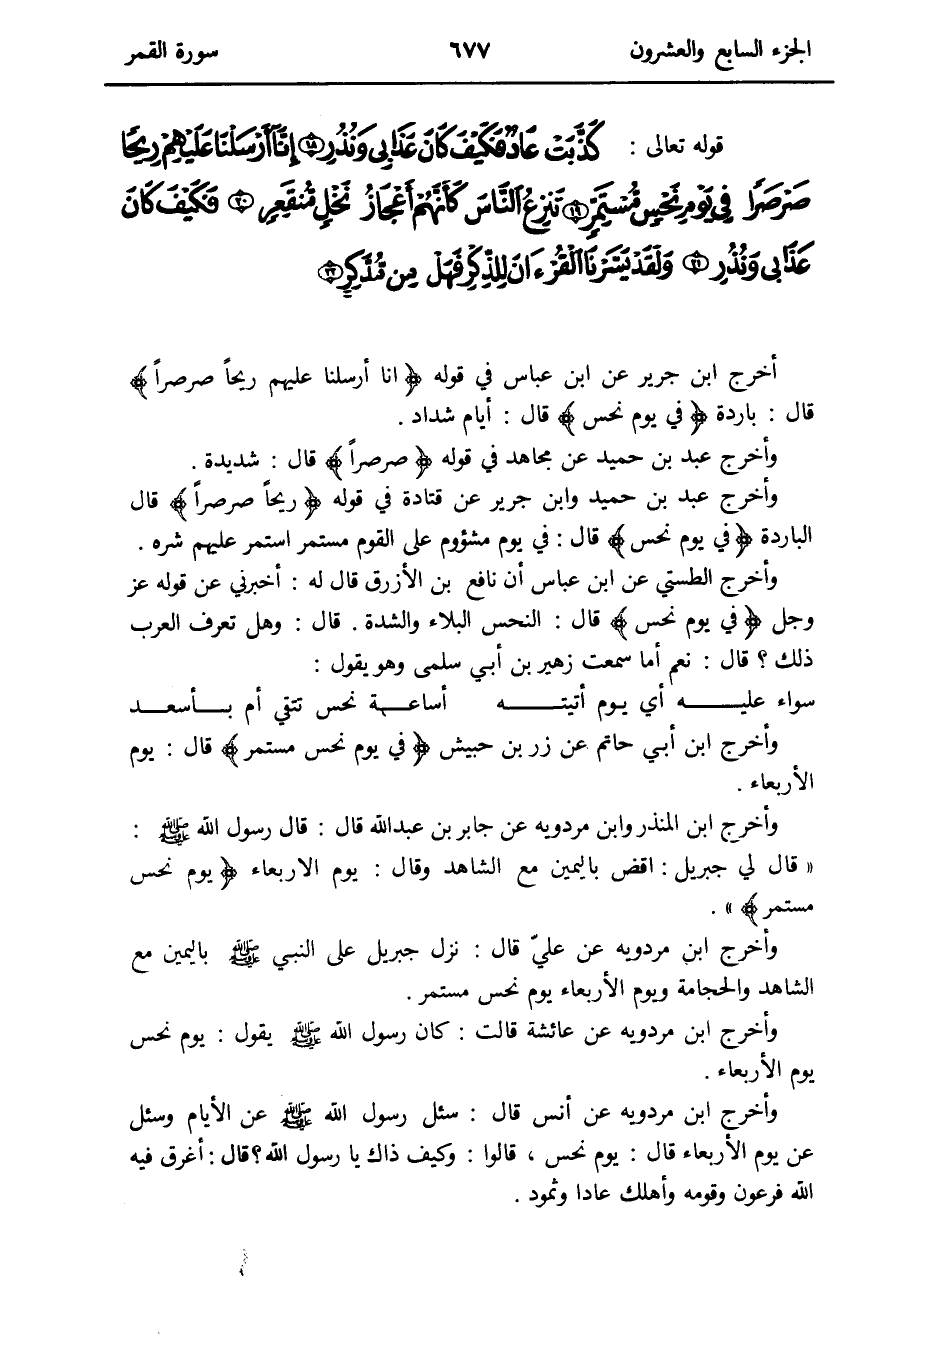 الجزء السابع والعشرون ٦٧٧ سورة القمر
قوله تعالى : كَذَّبَتْ عَادٌ فَكَيْفَ كَانَ عَذَابِي وَنُذُرِ ۝١٨ إِنَّا أَرْسَلْنَا عَلَيْهِمْ رِيحًا
صَرْصَرًا فِي يَوْمِ نَحْسٍ مُّسْتَمِرٍّ ۝١٩ تَنزِعُ النَّاسَ كَأَنَّهُمْ أَعْجَازُ نَخْلٍ مُّنقَعِرٍ ۝٢٠ فَكَيْفَ كَانَ
عَذَابِي وَنُذُرِ ۝٢١ وَلَقَدْ يَسَّرْنَا الْقُرْءَانَ لِلذِّكْرِ فَهَلْ مِن مُّدَّكِرٍ ۝٢٢
أخرج ابن جرير عن ابن عباس في قوله ﴿ انا أرسلنا عليهم ريحاً صرصراً ﴾
قال : باردة ﴿ في يوم نحس ﴾ قال : أيام شداد .
وأخرج عبد بن حميد عن مجاهد في قوله ﴿ صرصراً ﴾ قال : شديدة .
وأخرج عبد بن حميد وابن جرير عن قتادة في قوله ﴿ ريحاً صرصراً ﴾ قال
الباردة ﴿ في يوم نحس ﴾ قال : في يوم مشؤوم على القوم مستمر استمر عليهم شره .
وأخرج الطستي عن ابن عباس أن نافع بن الأزرق قال له : أخبرني عن قوله عز
وجل ﴿ في يوم نحس ﴾ قال : النحس البلاء والشدة . قال : وهل تعرف العرب
ذلك ؟ قال : نعم أما سمعت زهير بن أبي سلمى وهو يقول :
سواء عليـــــه أي يـوم أتيتـــــه أساعـــة نحس تتقي أم بـــأسعـــد
وأخرج ابن أبي حاتم عن زر بن حبيش ﴿ في يوم نحس مستمر ﴾ قال : يوم
الأربعاء .
وأخرج ابن المنذر وابن مردويه عن جابر بن عبدالله قال : قال رسول الله ﷺ :
« قال لي جبريل : اقض باليمين مع الشاهد وقال : يوم الاربعاء ﴿ يوم نحس
مستمر ﴾ » .
وأخرج ابن مردويه عن عليّ قال : نزل جبريل على النبي ﷺ باليمين مع
الشاهد والحجامة ويوم الأربعاء يوم نحس مستمر .
وأخرج ابن مردويه عن عائشة قالت : كان رسول الله ﷺ يقول : يوم نحس
يوم الأربعاء .
وأخرج ابن مردويه عن أنس قال : سئل رسول الله ﷺ عن الأيام وسئل
عن يوم الأربعاء قال : يوم نحس ، قالوا : وكيف ذاك يا رسول الله ؟ قال : أغرق فيه
الله فرعون وقومه وأهلك عادا وثمود .